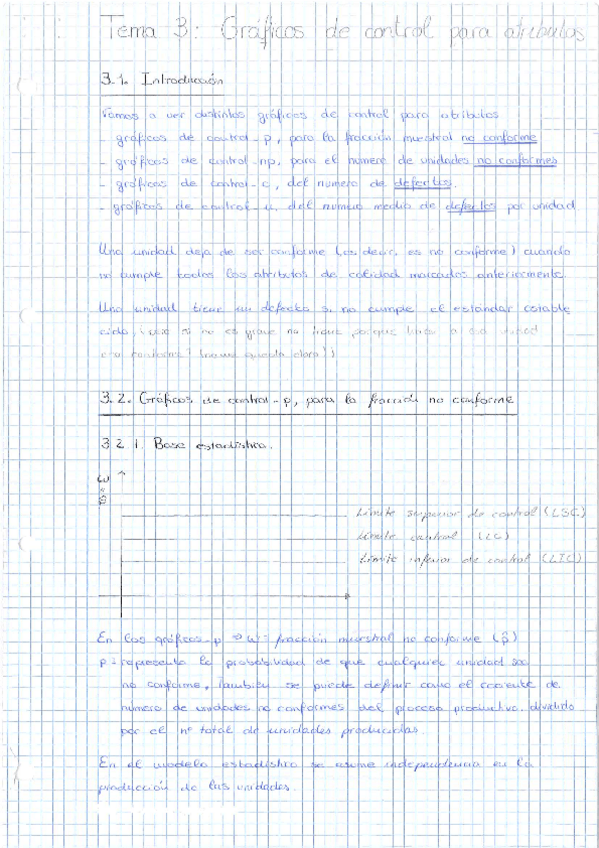 Tema 3: Gráficos de control para atributos
3.1. Introducción
Vamos a ver distintos gráficos de control para atributos
- gráficos de control-p, para la fracción muestral no conforme
- gráficos de control-np, para el numero de unidades no conformes
- gráficos de control-c, del numero de defectos.
- gráficos de control-u, del numero medio de defectos por unidad
Una unidad deja de ser conforme (es decir, es no conforme) cuando
no cumple todos los atributos de calidad marcados anteriormente.
Una unidad tiene un defecto si no cumple el estándar estable
cido, si no es grave no tiene porque
conforme
3.2. Gráficos de control-p, para la fracción no conforme
3.2.1. Base estadística.
Límite superior de control (LSC)
Límite central (LC)
Límite inferior de control (LIC)
En los gráficos-p ⇒ ω = fracción muestral no conforme (p̂)
p = representa la probabilidad de que cualquier unidad sea
no conforme. También se puede definir como el cociente de
número de unidades no conformes del proceso productivo, dividido
por el nº total de unidades producidas.
En el modelo estadístico se asume independencia en la
producción de las unidades.